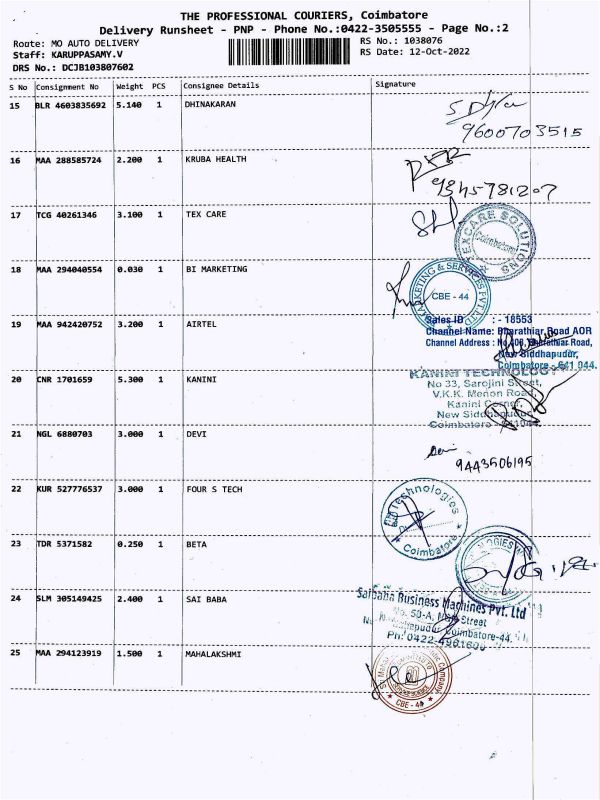 THE PROFESSIONAL COURIERS, Coimbatore
Delivery Runsheet - PNP - Phone No.:0422-3505555 - Page No.:2
Route: MO AUTO DELIVERY
RS No.: 1038076
Staff: KARUPPASAMY.V
RS Date: 12-Oct-2022
DRS No.: DCJB103807602
S No Consignment No Weight PCS Consignee Details Signature
15 BLR 4603835692 5.140 1 DHINAKARAN
9600703515
16 MAA 288585724 2.200 1 KRUBA HEALTH
9345781207
17 TCG 40261346 3.100 1 TEX CARE
TEXCARE SOLUTIONS
Coimbatore
18 MAA 294040554 0.030 1 BI MARKETING
MARKETING & SERVICES PVT LTD
CBE - 44
19 MAA 942420752 3.200 1 AIRTEL
Sales ID : - 18553
Channel Name: Bharathiar Road AOR
Channel Address : No.408, Bharathiar Road,
New Siddhapudur,
Coimbatore - 641 044.
20 CNR 1701659 5.300 1 KANINI
KANINI TECHNOLOGY
No 33, Sarojini Street,
V.K.K. Menon Road,
Kanini Corner,
New Siddhapudur
Coimbatore - 641044.
21 NGL 6880703 3.000 1 DEVI
Devi
9443506195
22 KUR 527776537 3.000 1 FOUR S TECH
Technologies
Coimbatore
23 TDR 5371582 0.250 1 BETA
24 SLM 305149425 2.400 1 SAI BABA
Saibaba Business Machines Pvt. Ltd
No. 50-A, Street
Coimbatore-44.
Ph: 0422-4901600
25 MAA 294123919 1.500 1 MAHALAKSHMI
Company
CBE - 44